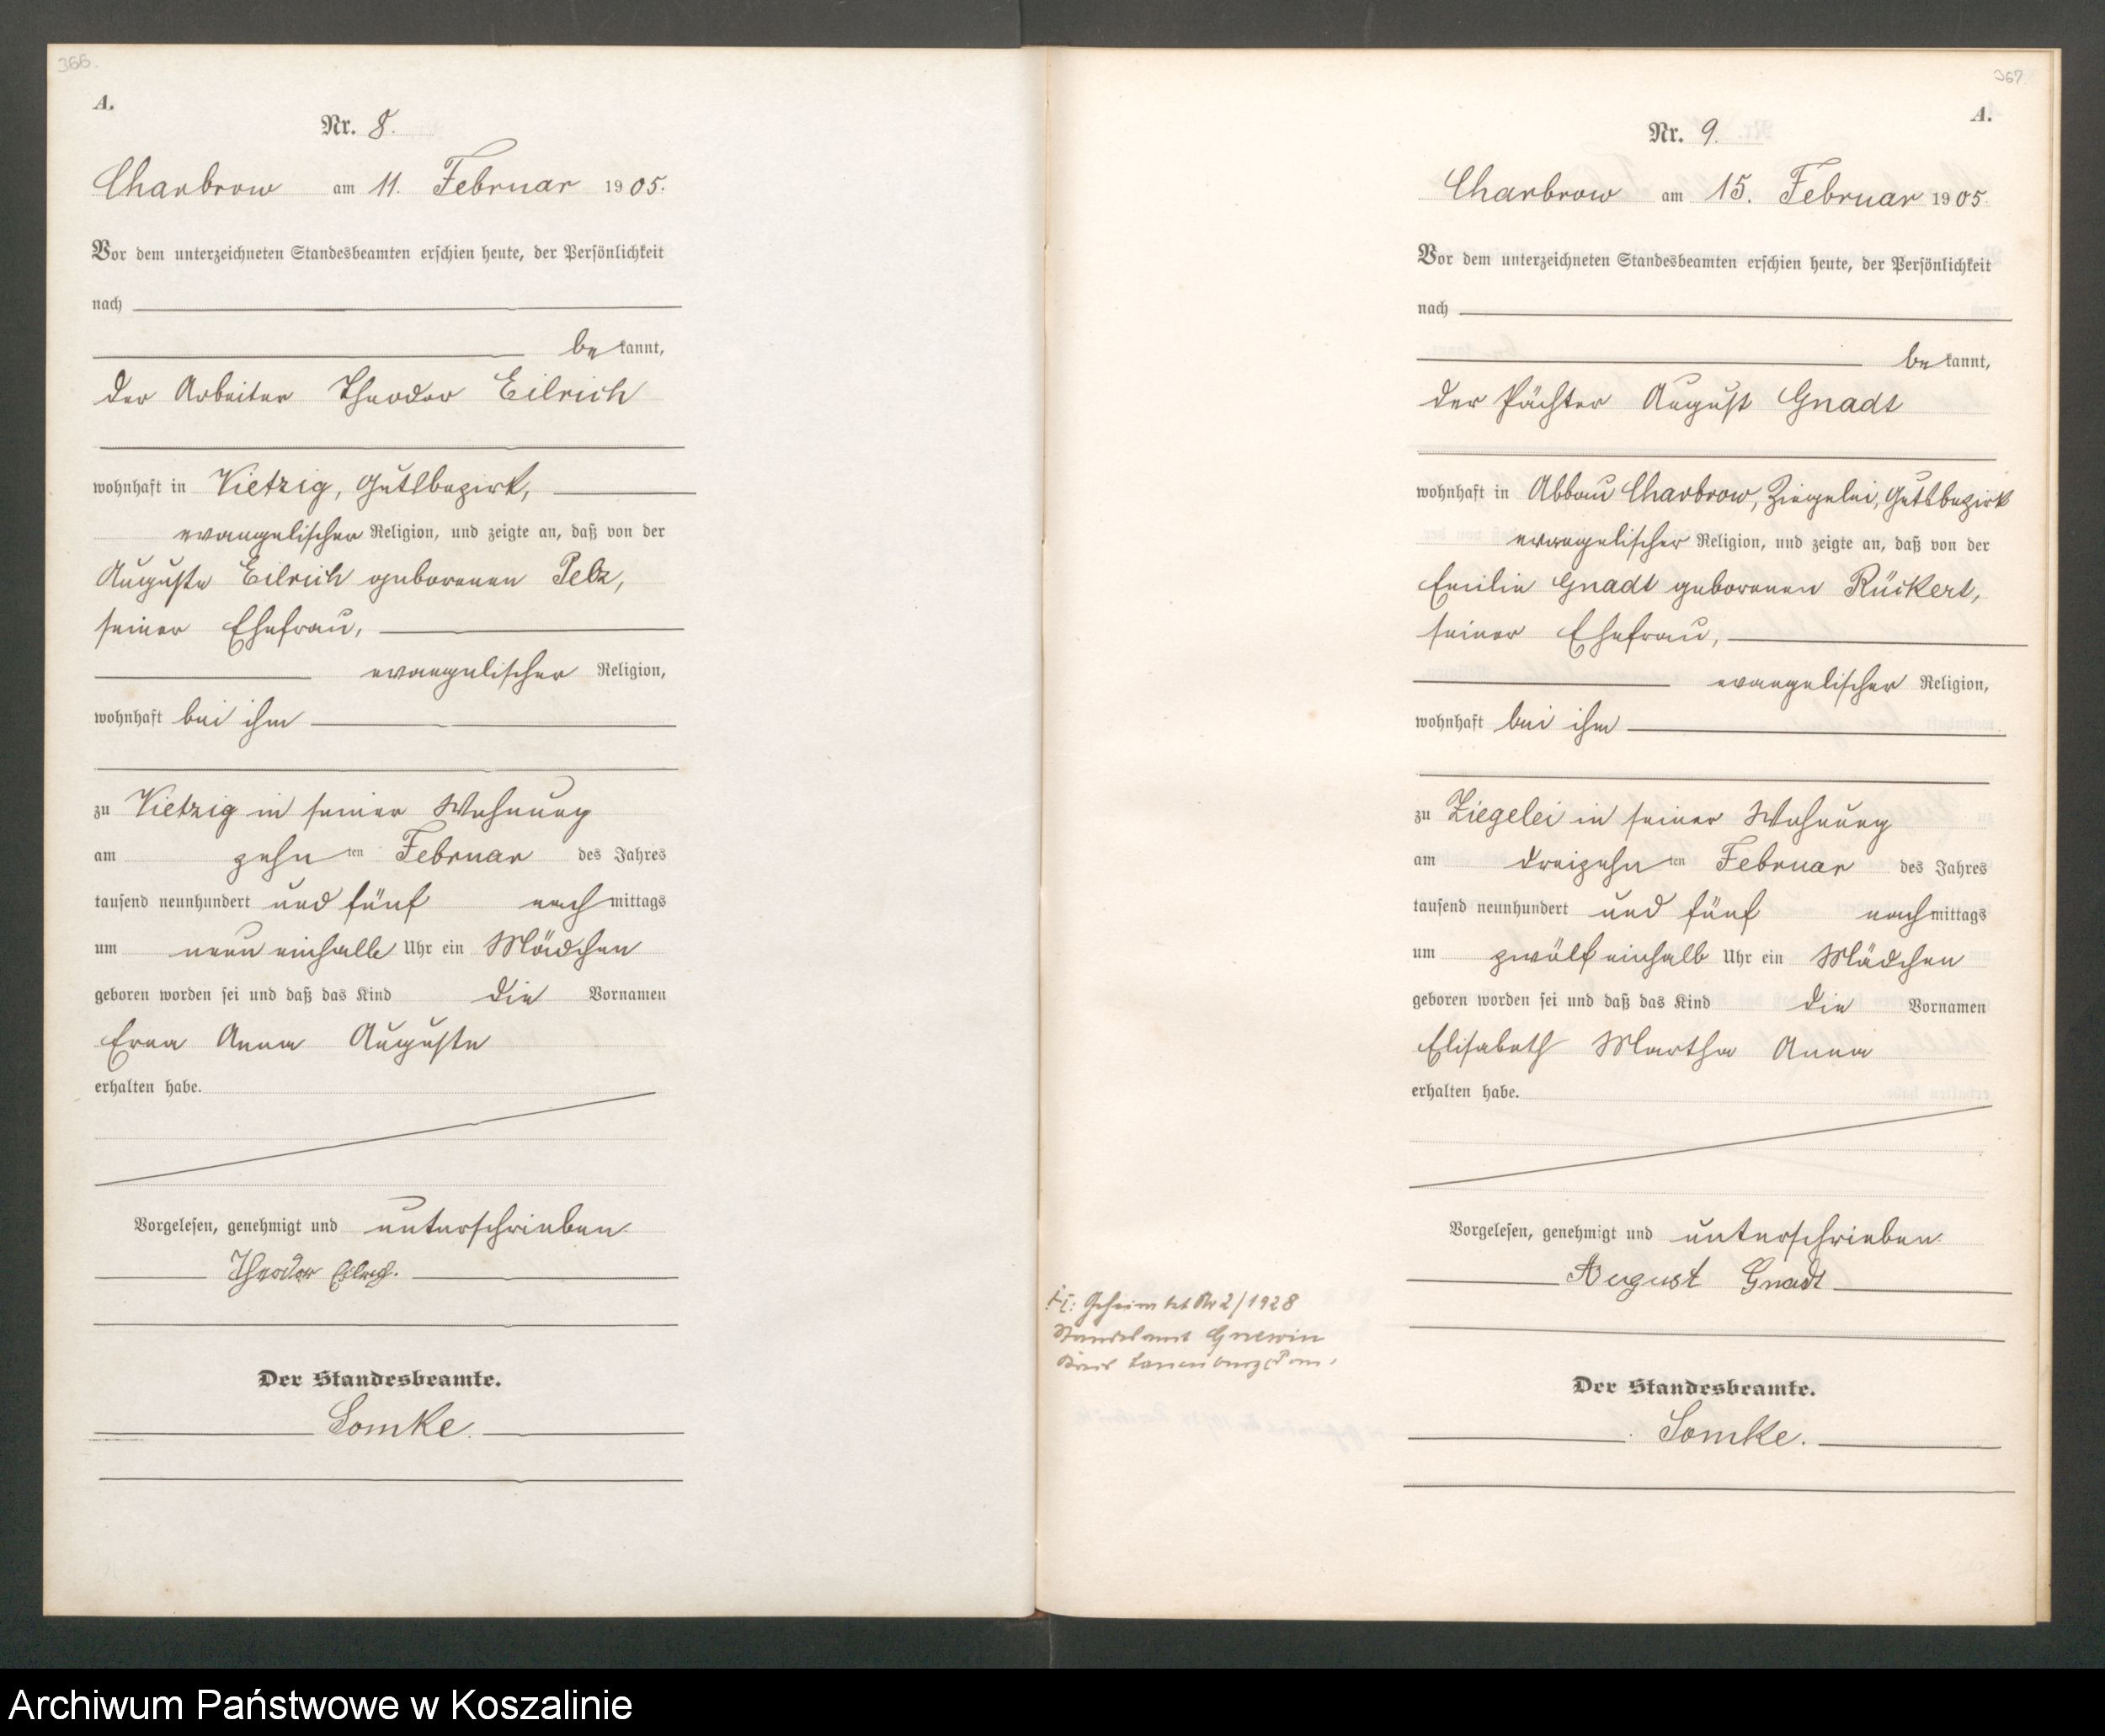 366.
A.
Nr. 8.
Charbrow am 11. Februar 1905.
Vor dem unterzeichneten Standesbeamten erschien heute, der Persönlichkeit
nach
bekannt,
der Arbeiter Theodor Eilrich
wohnhaft in Vietzig, Gutsbezirk,
evangelischer Religion, und zeigte an, daß von der
Auguste Eilrich geborenen Pelz,
seiner Ehefrau,
evangelischer Religion,
wohnhaft bei ihm
zu Vietzig in seiner Wohnung
am zehnten Februar des Jahres
tausend neunhundert und fünf nachmittags
um neun einhalb Uhr ein Mädchen
geboren worden sei und daß das Kind die Vornamen
Erna Anna Auguste
erhalten habe.
Vorgelesen, genehmigt und unterschrieben.
Theodor Eilrich.
Der Standesbeamte.
Lomke.
367.
A.
Nr. 9.
Charbrow am 15. Februar 1905.
Vor dem unterzeichneten Standesbeamten erschien heute, der Persönlichkeit
nach
bekannt,
der Pächter August Gnadt
wohnhaft in Abbau Charbrow, Ziegelei, Gutsbezirk
evangelischer Religion, und zeigte an, daß von der
Emilie Gnadt geborenen Rückert,
seiner Ehefrau,
evangelischer Religion,
wohnhaft bei ihm
zu Ziegelei in seiner Wohnung
am dreizehnten Februar des Jahres
tausend neunhundert und fünf nachmittags
um zwölf einhalb Uhr ein Mädchen
geboren worden sei und daß das Kind die Vornamen
Elisabeth Martha Anna
erhalten habe.
Vorgelesen, genehmigt und unterschrieben.
August Gnadt
Nr 2/1928
Standesamt Gnewin
Der Standesbeamte.
Lomke.
Archiwum Państwowe w Koszalinie